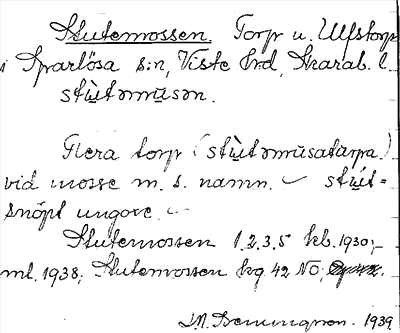 Stutemossen. Torp u. Ulfstorp
i Sparlösa s:n, Viste hrd, Skarab. l.
stùtəmůsən.
Flera torp (stùtəmůsatårpa)
vid mosse m. s. namn. stùt=
snöpt ungoxe.
Stutemossen 1.2.3.5 kb. 1930;
ml. 1938; Stutemossen kg 42 NO;
1939